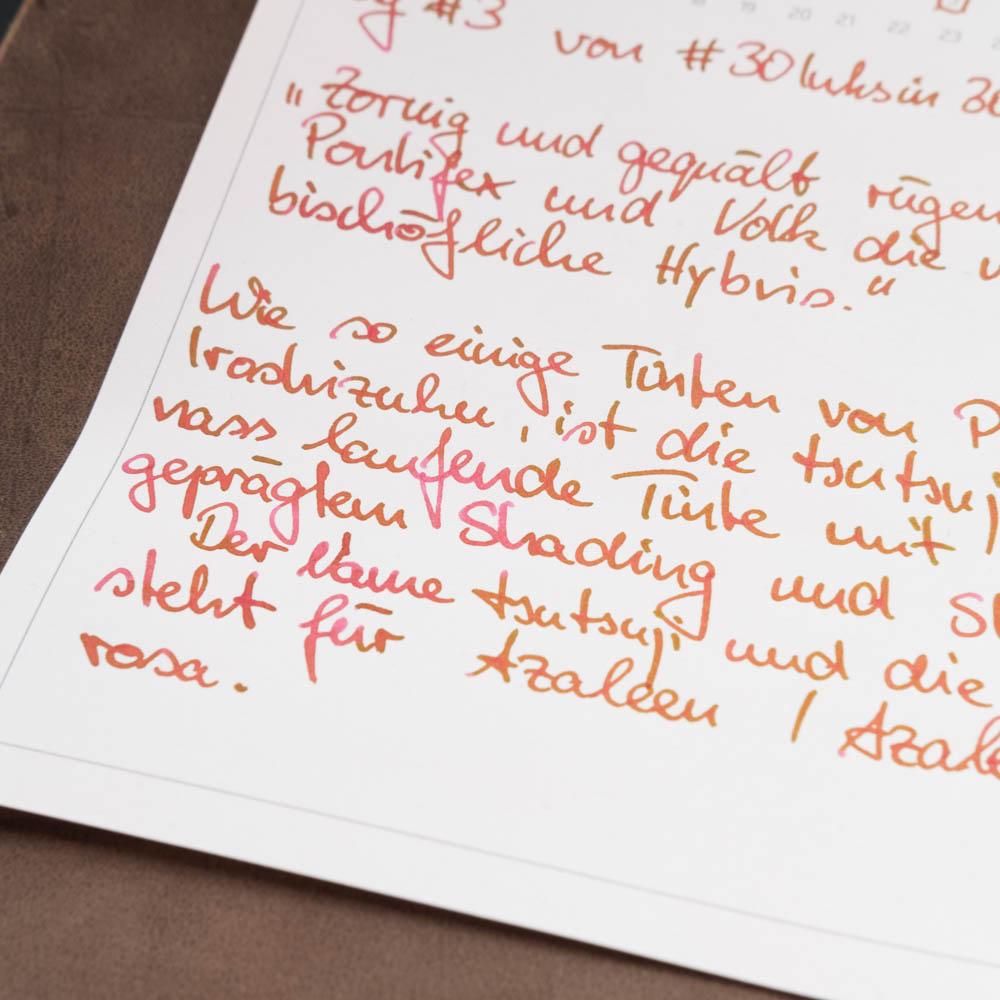 18 19 20 21 22 23
#3 von #30Inksin30
„Zornig und gequält rügen
Pontifex und Volk die
bischöfliche Hybris.“
Wie so einige Tinten von
Iroshizuku, ist die tsutsuji
nass laufende Tinte mit
geprägtem Shading und
Der Name tsutsuji und die
steht für Azaleen /
rosa.